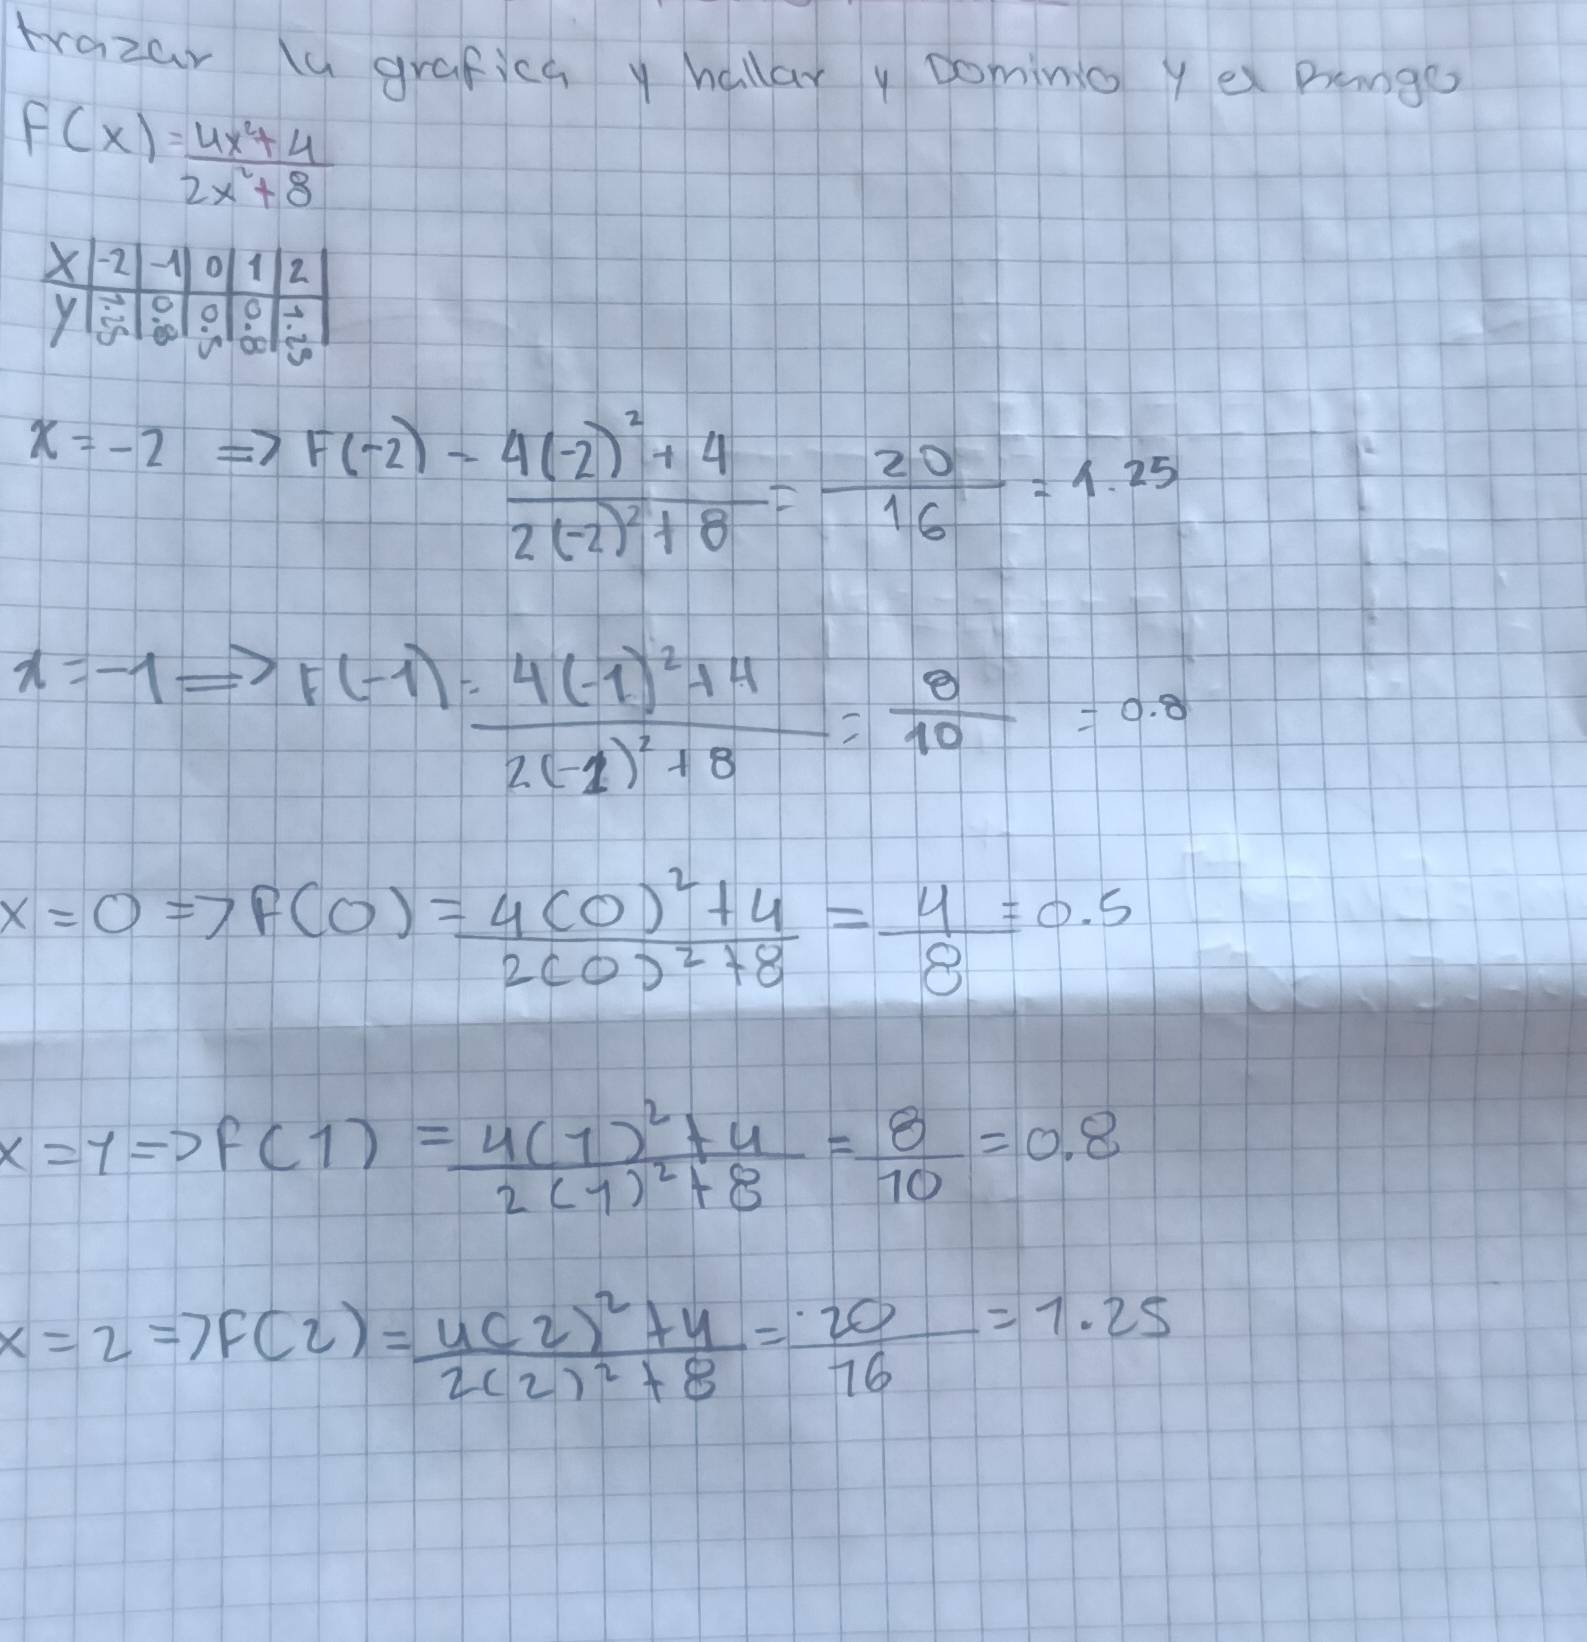 trazar la grafica y hallar y Dominio y el Rango
F(x) = 4x²+4
2x²+8
X | -2 | -1 | 0 | 1 | 2
y | 1.25 | 0.8 | 0.5 | 0.8 | 1.25
x = -2 => F(-2) = 4(-2)² + 4 = 20 = 1.25
2(-2)² + 8 16
x = -1 => F(-1) = 4(-1)² + 4 = 8 = 0.8
2(-1)² + 8 10
x = 0 => F(0) = 4(0)² + 4 = 4 = 0.5
2(0)² + 8 8
x = 1 => F(1) = 4(1)² + 4 = 8 = 0.8
2(1)² + 8 10
x = 2 => F(2) = 4(2)² + 4 = 20 = 1.25
2(2)² + 8 16